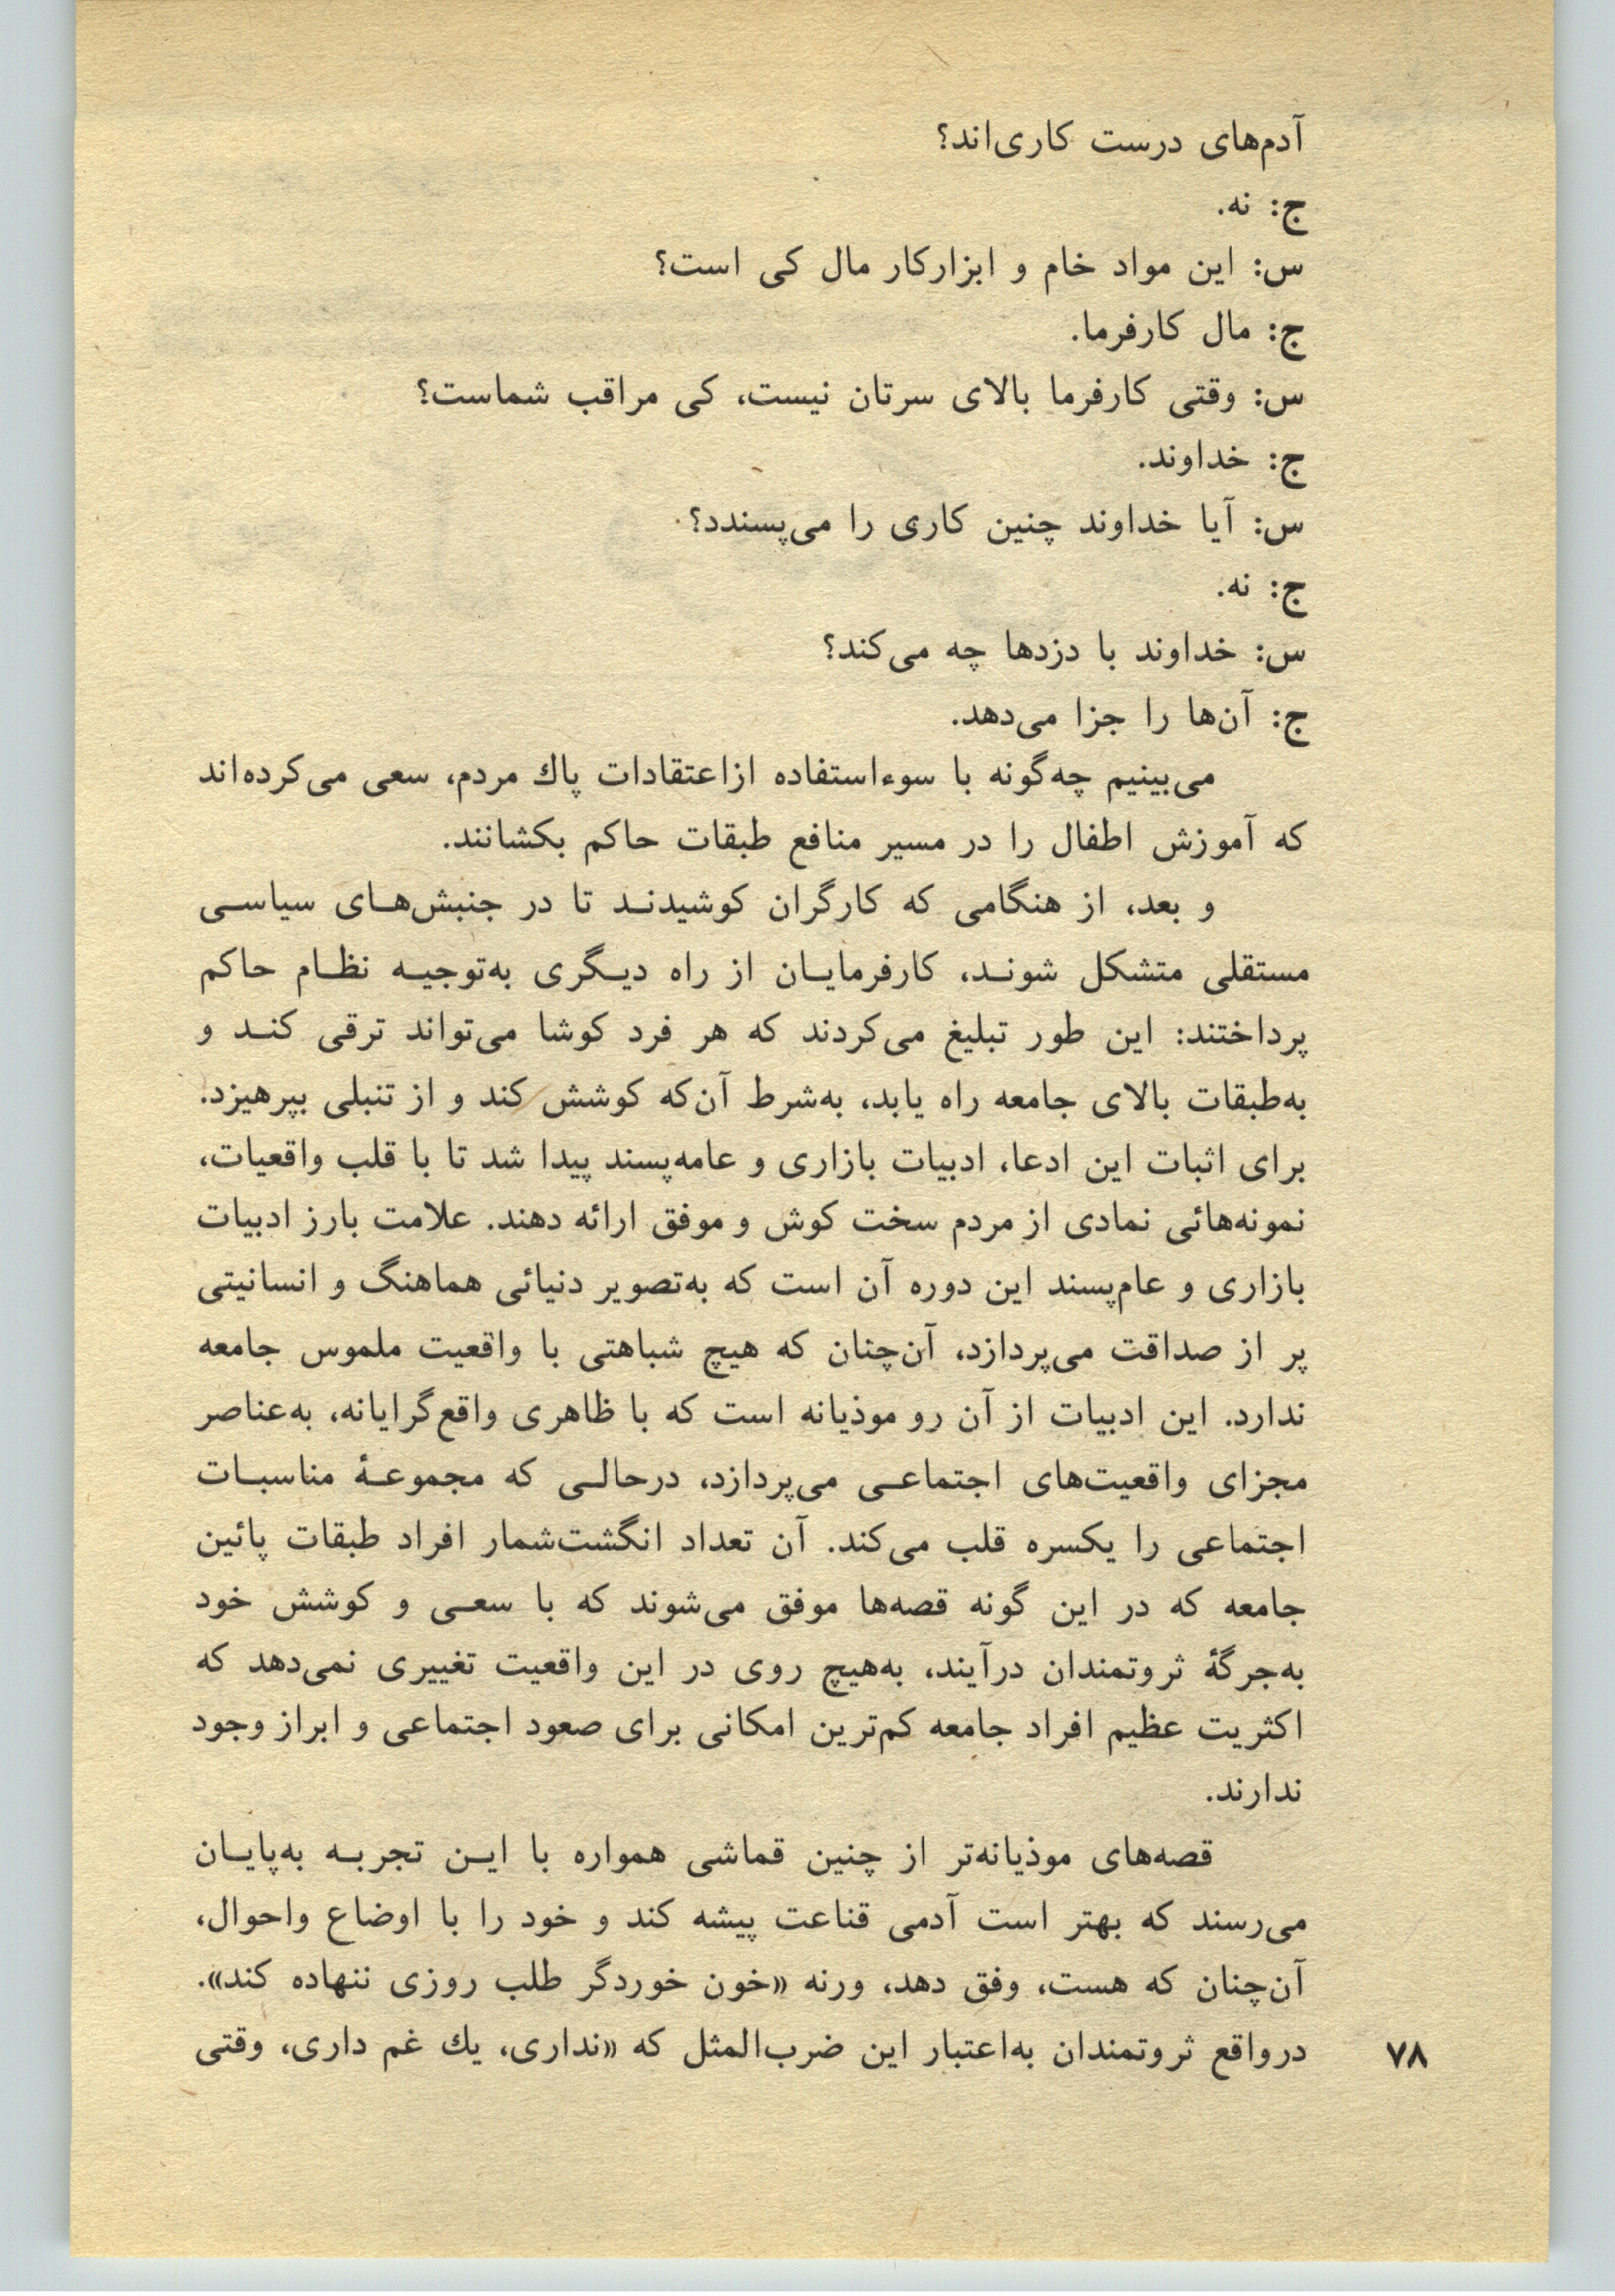 آدم‌های درست کاری‌اند؟
ج: نه.
س: این مواد خام و ابزارکار مال کی است؟
ج: مال کارفرما.
س: وقتی کارفرما بالای سرتان نیست، کی مراقب شماست؟
ج: خداوند.
س: آیا خداوند چنین کاری را می‌پسندد؟
ج: نه.
س: خداوند با دزدها چه می‌کند؟
ج: آن‌ها را جزا می‌دهد.
می‌بینیم چه‌گونه با سوءاستفاده ازاعتقادات پاك مردم، سعی می‌کرده‌اند
که آموزش اطفال را در مسیر منافع طبقات حاکم بکشانند.
و بعد، از هنگامی که کارگران کوشیدنـد تا در جنبش‌هـای سیاسـی
مستقلی متشکل شونـد، کارفرمایـان از راه دیـگری به‌توجیـه نظـام حاکم
پرداختند: این طور تبلیغ می‌کردند که هر فرد کوشا می‌تواند ترقی کنـد و
به‌طبقات بالای جامعه راه یابد، به‌شرط آن‌که کوشش کند و از تنبلی بپرهیزد.
برای اثبات این ادعا، ادبیات بازاری و عامه‌پسند پیدا شد تا با قلب واقعیات،
نمونه‌هائی نمادی از مردم سخت کوش و موفق ارائه دهند. علامت بارز ادبیات
بازاری و عام‌پسند این دوره آن است که به‌تصویر دنیائی هماهنگ و انسانیتی
پر از صداقت می‌پردازد، آن‌چنان که هیچ شباهتی با واقعیت ملموس جامعه
ندارد. این ادبیات از آن رو موذیانه است که با ظاهری واقع‌گرایانه، به‌عناصر
مجزای واقعیت‌های اجتماعـی می‌پردازد، درحالـی که مجموعـۀ مناسبـات
اجتماعی را یکسره قلب می‌کند. آن تعداد انگشت‌شمار افراد طبقات پائین
جامعه که در این گونه قصه‌ها موفق می‌شوند که با سعـی و کوشش خود
به‌جرگۀ ثروتمندان درآیند، به‌هیچ روی در این واقعیت تغییری نمی‌دهد که
اکثریت عظیم افراد جامعه کم‌ترین امکانی برای صعود اجتماعی و ابراز وجود
ندارند.
قصه‌های موذیانه‌تر از چنین قماشی همواره با ایـن تجربـه به‌پایـان
می‌رسند که بهتر است آدمی قناعت پیشه کند و خود را با اوضاع واحوال،
آن‌چنان که هست، وفق دهد، ورنه «خون خوردگر طلب روزی ننهاده کند».
درواقع ثروتمندان به‌اعتبار این ضرب‌المثل که «نداری، یك غم داری، وقتی
۷۸